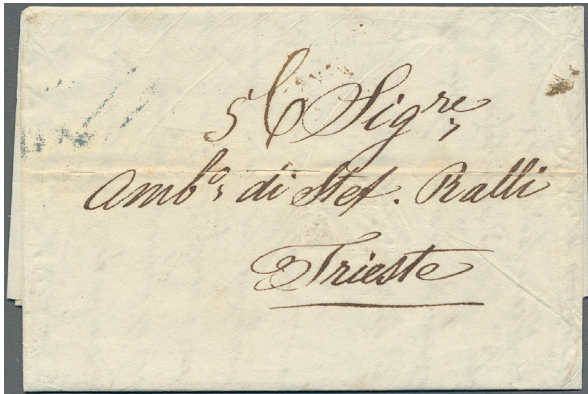 56 Sigre
Ambo di Stef. Ralli
Trieste